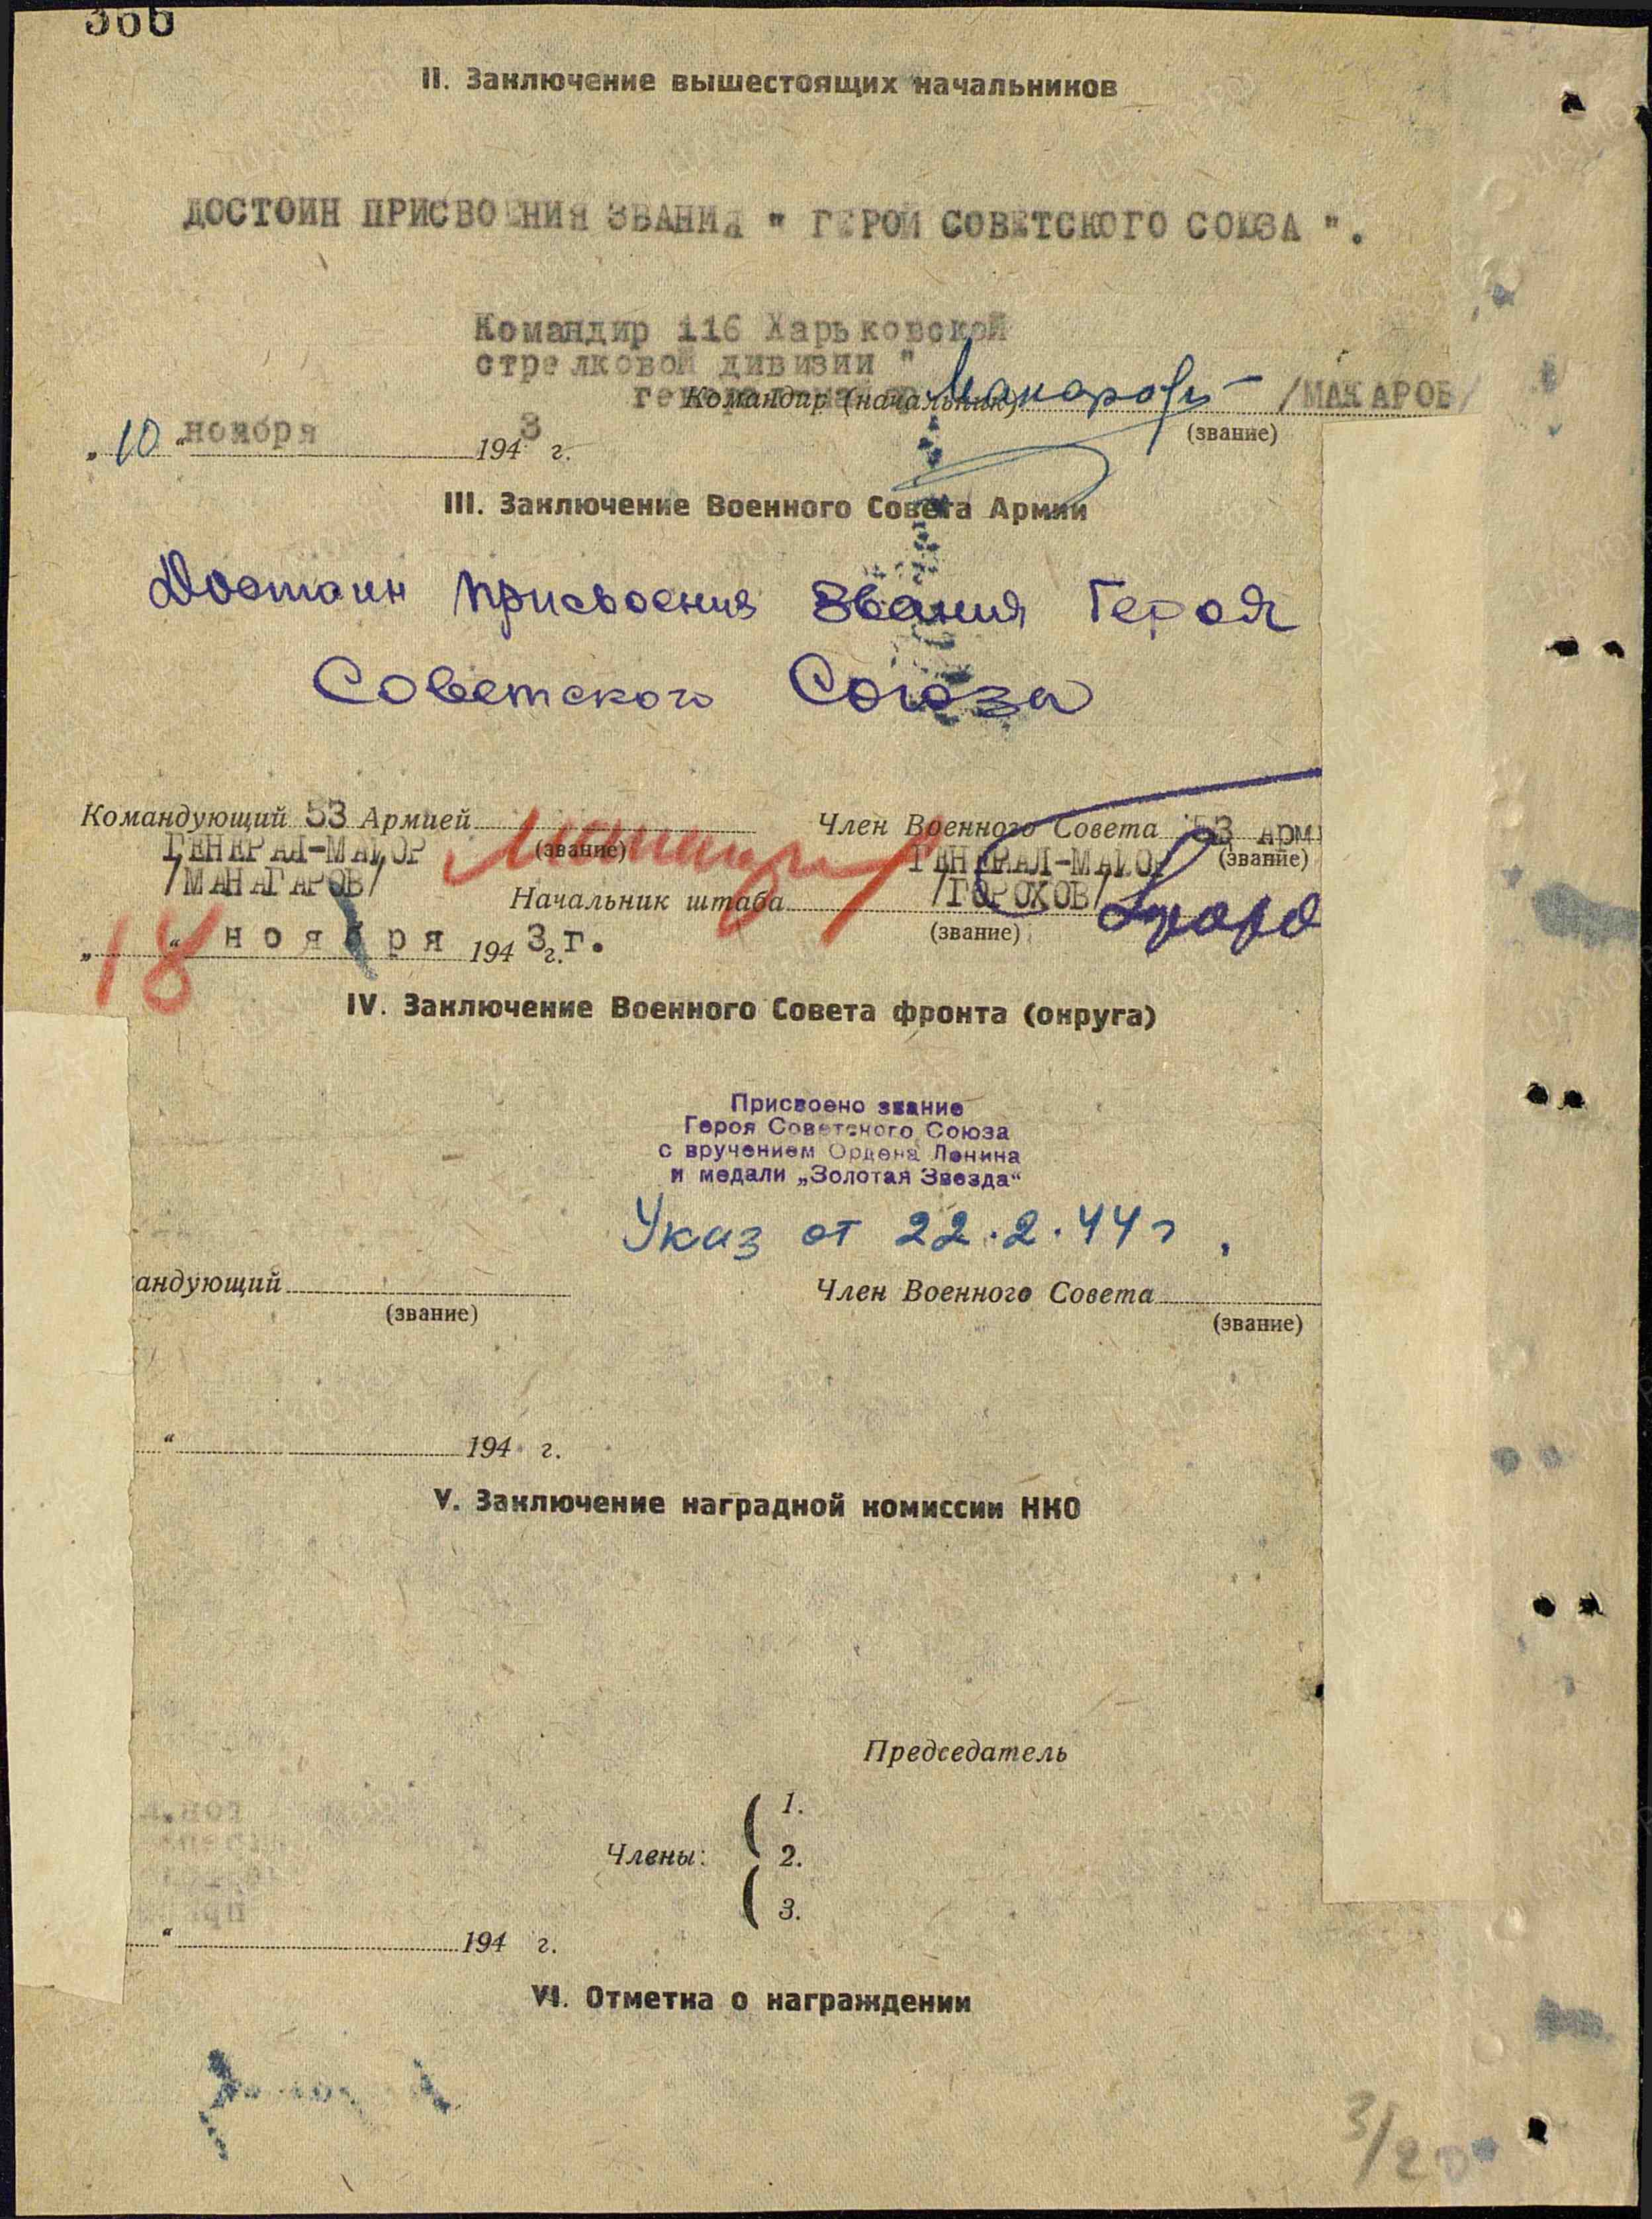 366
II. Заключение вышестоящих начальников
ДОСТОИН ПРИСВОЕНИЯ ЗВАНИЯ " ГЕРОЙ СОВЕТСКОГО СОЮЗА ".
Командир 116 Харьковской
стрелковой дивизии "
Командир (начальник) Макаров /МАКАРОВ/
(звание)
„10“ ноября 1943 г.
III. Заключение Военного Совета Армии
Достоин присвоения звания Героя
Советского Союза
Командующий 53 Армией
Член Военного Совета 53 арм
ГЕНЕРАЛ-МАЙОР (звание)
ГЕНЕРАЛ-МАЙОР (звание)
/МАНАГАРОВ/
Начальник штаба /ГОРОХОВ/
(звание)
„18“ ноября 1943 г. г.
IV. Заключение Военного Совета фронта (округа)
Присвоено звание
Героя Советского Союза
с вручением Ордена Ленина
и медали „Золотая Звезда“
Указ от 22.2.44 г.
андующий
Член Военного Совета
(звание)
(звание)
“ 194 г.
V. Заключение наградной комиссии НКО
Председатель
1.
Члены: 2.
3.
“ 194 г.
VI. Отметка о награждении
3/20